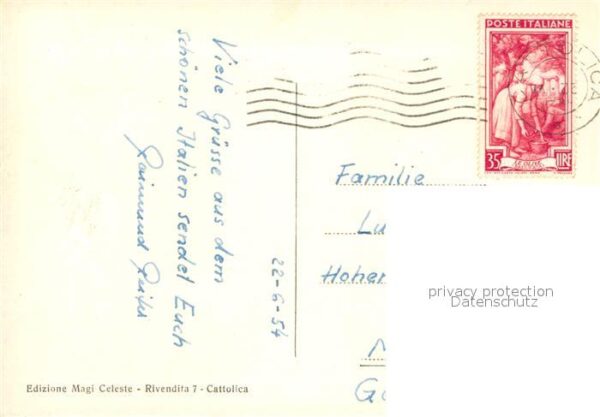 Viele Grüsse aus dem
schönen Italien sendet Euch
Raimund
22-6-54
POSTE ITALIANE
35 LIRE
Familie
Lu
Hohen
privacy protection
Datenschutz
Edizione Magi Celeste - Rivendita 7 - Cattolica